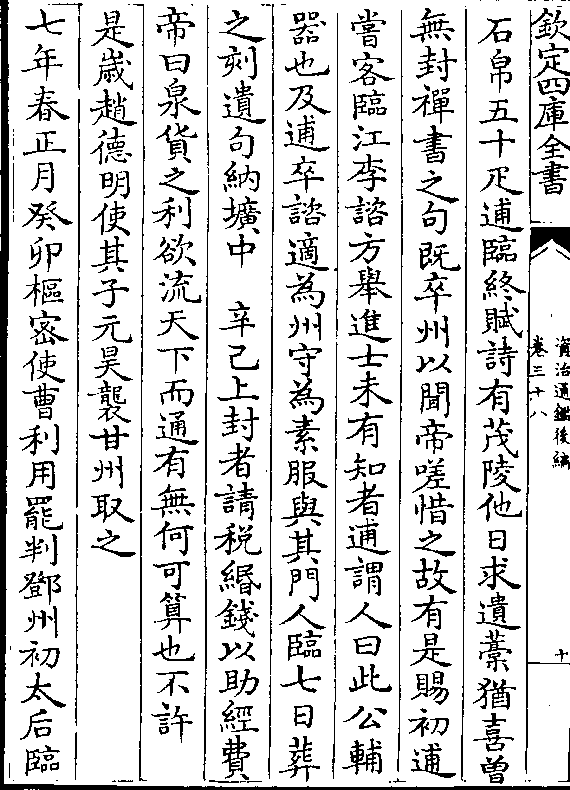 欽定四庫全書
資治通鑑後編
卷三十八
十
石帛五十疋逋臨終賦詩有茂陵他日求遺藁猶喜曾
無封禪書之句既卒州以聞帝嗟惜之故有是賜初逋
嘗客臨江李諮方舉進士未有知者逋謂人曰此公輔
器也及逋卒諮適為州守為素服與其門人臨七日葬
之刻遺句納壙中　辛己上封者請税緡錢以助經費
帝曰泉貨之利欲流天下而通有無何可算也不許
是歳趙德明使其子元昊襲甘州取之
七年春正月癸卯樞密使曹利用罷判鄧州初太后臨